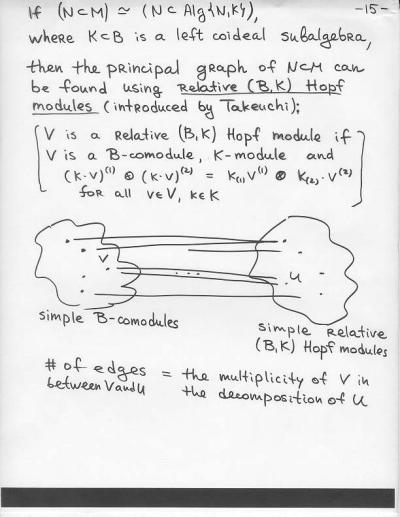 If (N⊂M) ≃ (N⊂ Alg{N,K}),
-15-
where K⊂B is a left coideal subalgebra,
then the principal graph of N⊂M can
be found using Relative (B,K) Hopf
modules (introduced by Takeuchi);
V is a Relative (B,K) Hopf module if
V is a B-comodule, K-module and
(k·v)⁽¹⁾ ⊗ (k·v)⁽²⁾ = k₍₁₎v⁽¹⁾ ⊗ k₍₂₎·v⁽²⁾
for all v∈V, k∈K
V
...
U
simple B-comodules
simple Relative
(B,K) Hopf modules
# of edges = the multiplicity of V in
between V and U the decomposition of U